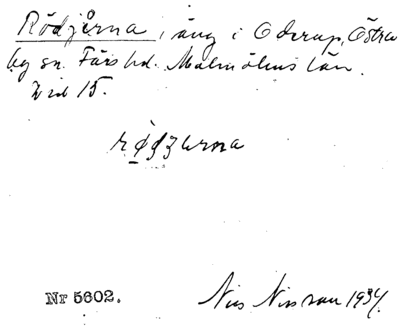 Rödjårna, äng i Oderup, Östra
by sn. Färs hd. Malmöhus län.
Nr 5602. Nils Nilsson 1934.